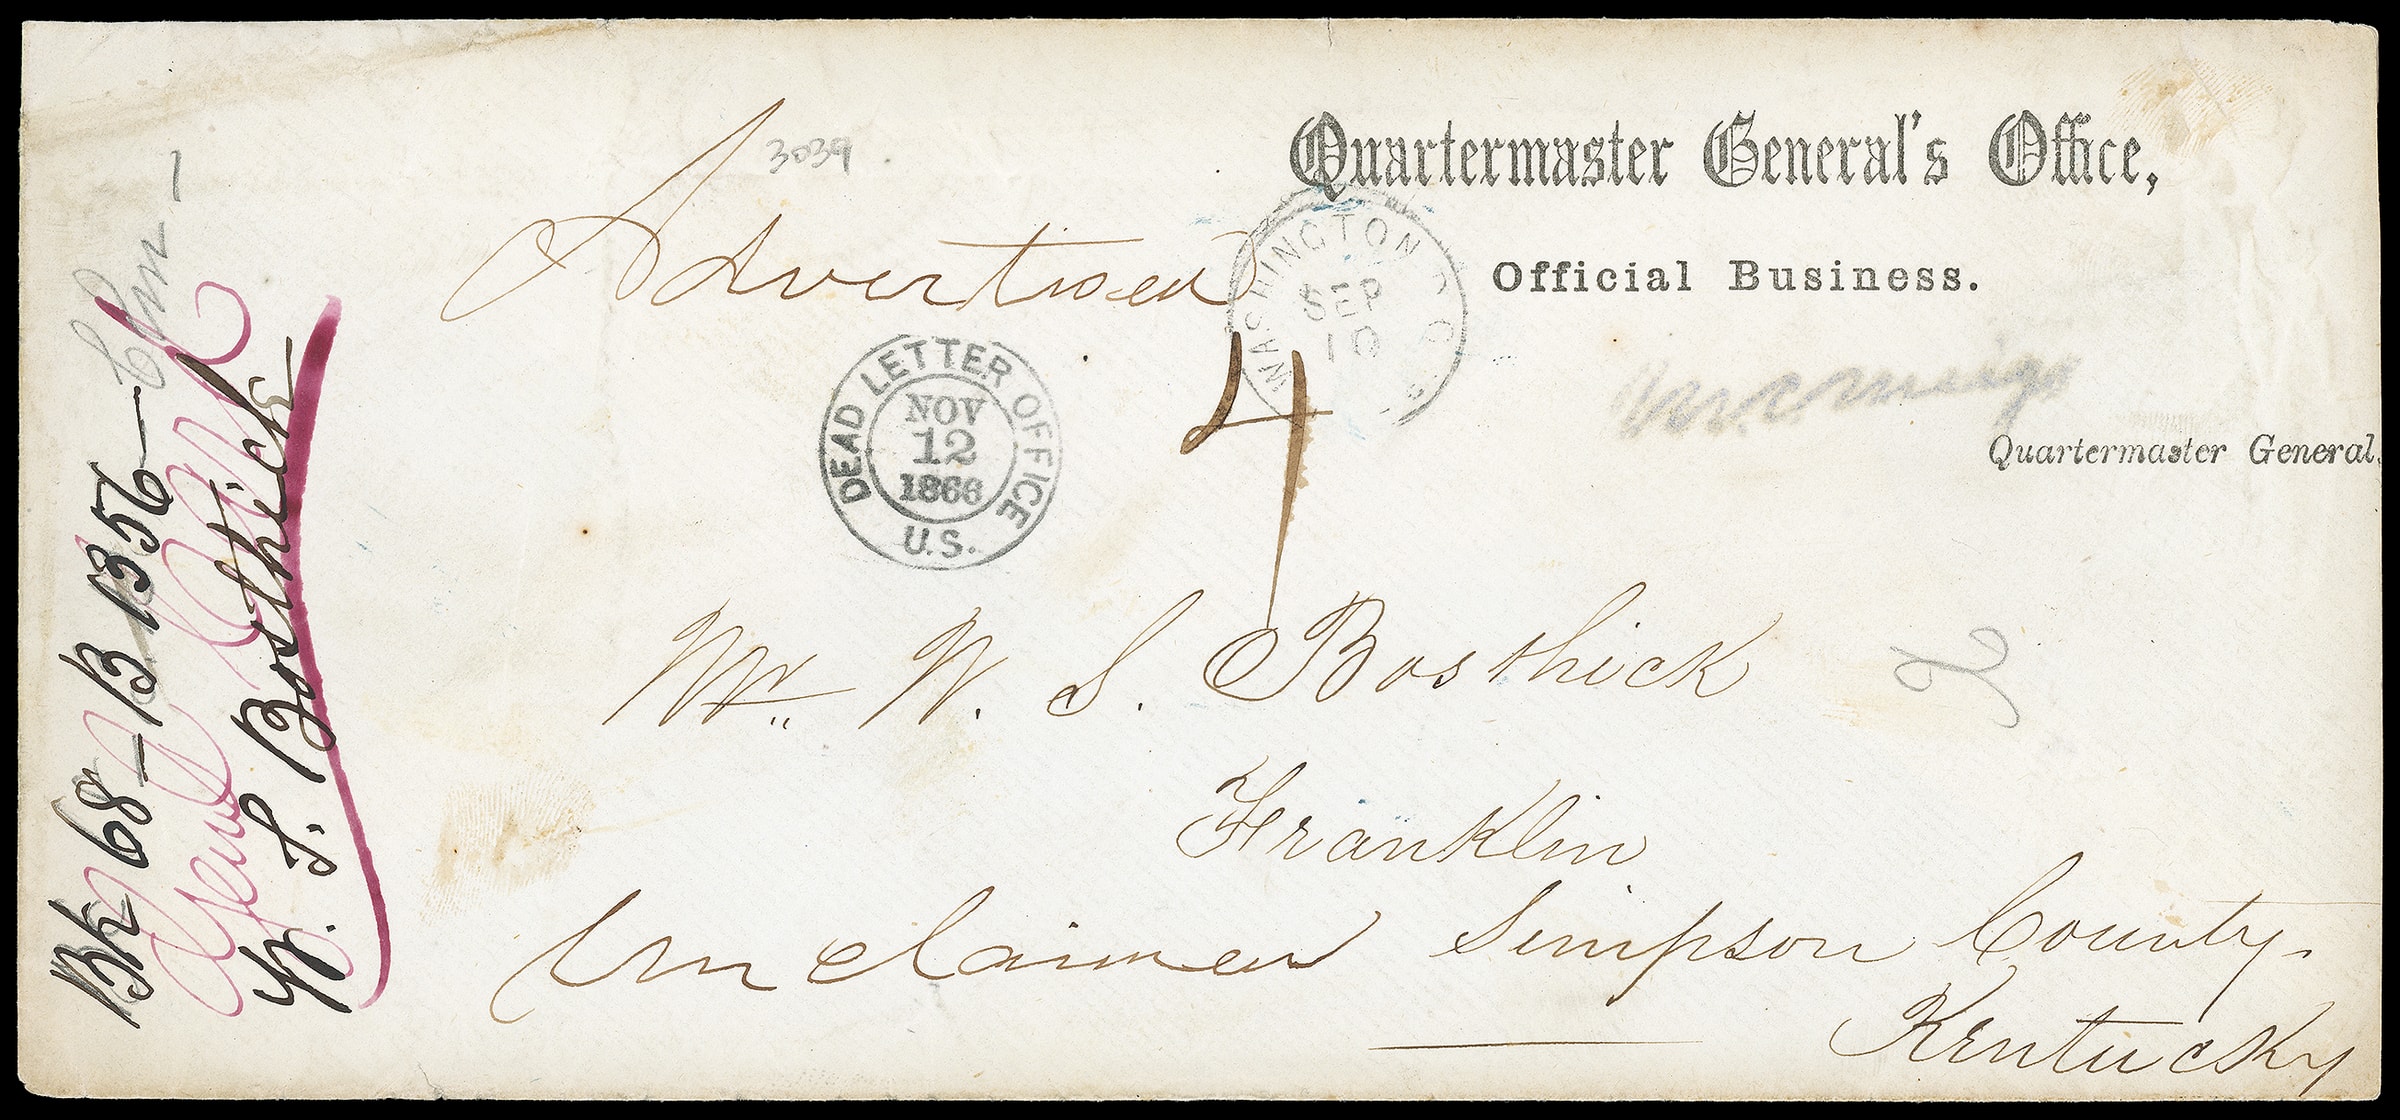 Quartermaster General's Office,
Official Business.
Quartermaster General.
3039
Advertised
WASHINGTON D.C.
SEP
10
DEAD LETTER OFFICE
NOV
12
1866
U.S.
4
Mr. W. S. Bosthick
Franklin
Simpson County.
Kentucky
Unclaimed
Bk 68 – B 1356 –
W. S. Bosthick